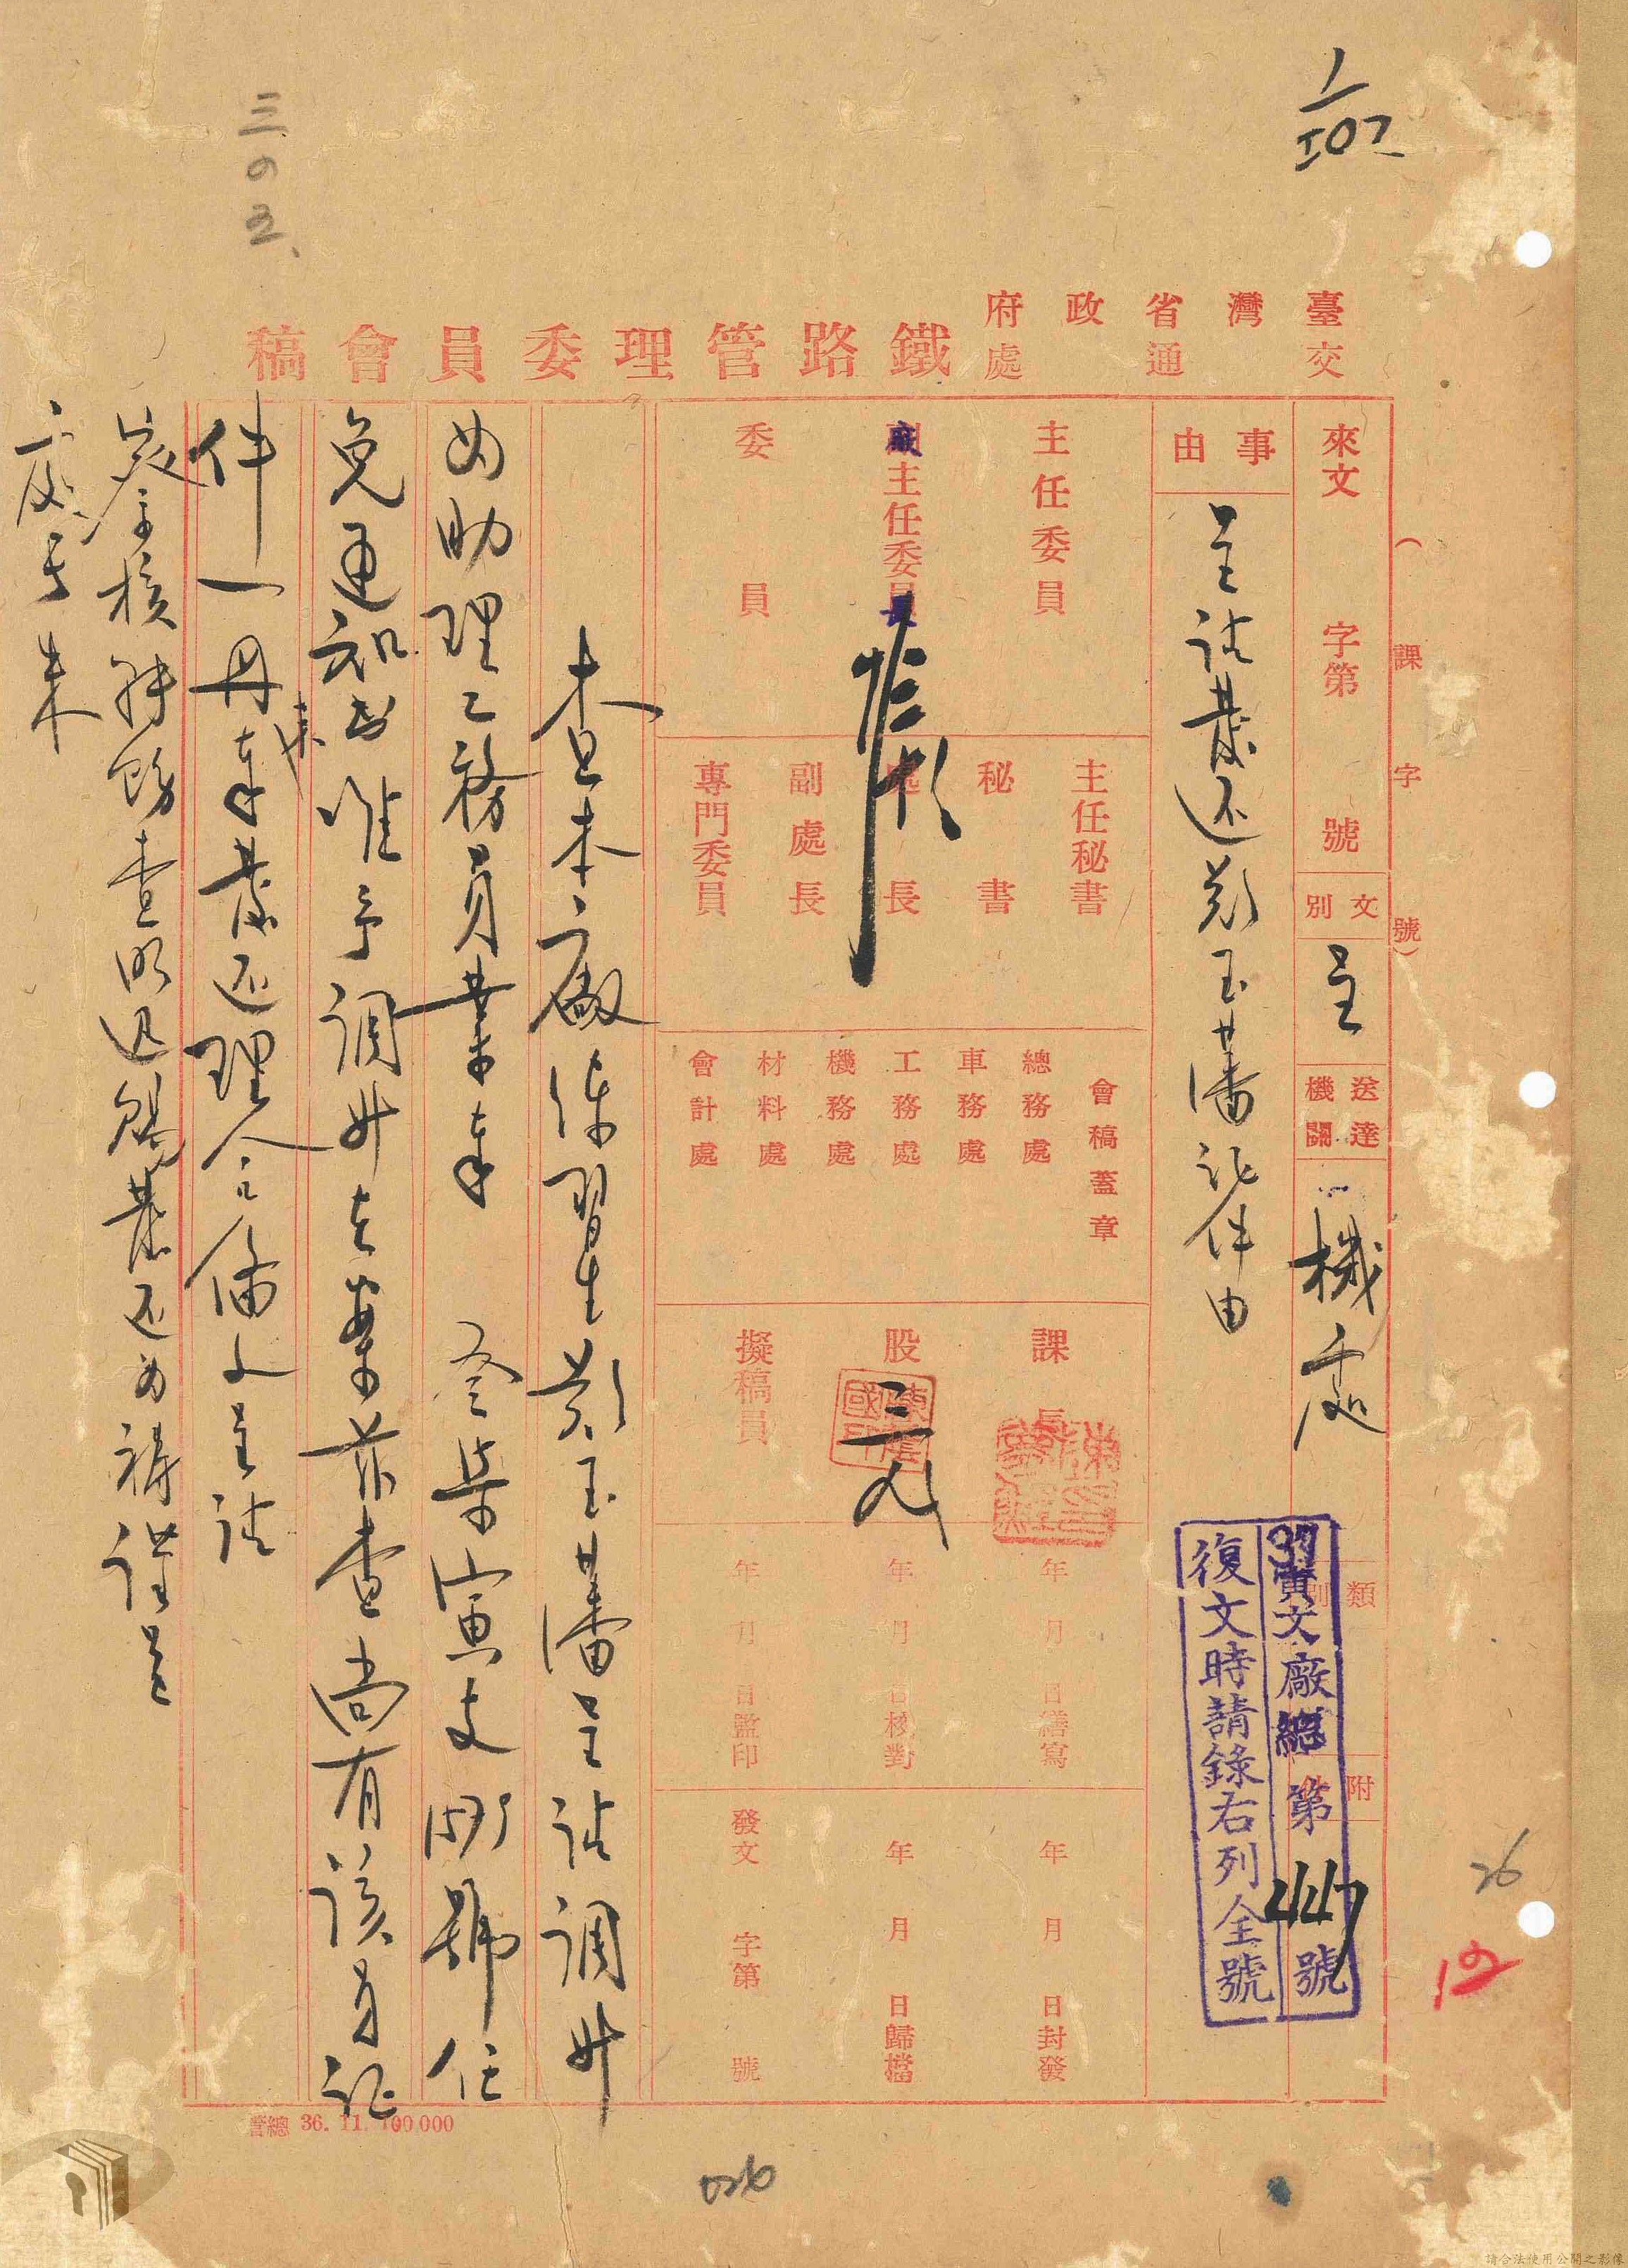 1/507
三の五、
臺灣省政府
交通處
鐵路管理委員會稿
(課字號)
來文 字第 號
文別 呈
送達機關 機處
類別
附
事由 呈請發還彭玉蕃証件由
主任委員
廠主任委員長
委員
主任秘書
秘書
處長
副處長
專門委員
會稿蓋章
總務處
車務處
工務處
機務處
材料處
會計處
課長
股
三 九
擬稿員
年月日繕寫
年月日校對
年月日監印
年月日封發
年月日歸檔
發文字第號
37寅文廠總第447號
復文時請錄右列全號
查本廠練習生彭玉蕃呈請調升
為助理工務員業奉 叁柒寅支 號任
免通知書准予調升在案茲查尚有該員証
件一冊未奉發還理合備文呈請
鑒核轉飭查明迅賜發還為禱謹呈
處長朱
26
19
026
警總 36. 11. 100,000
請合法使用公開之影像